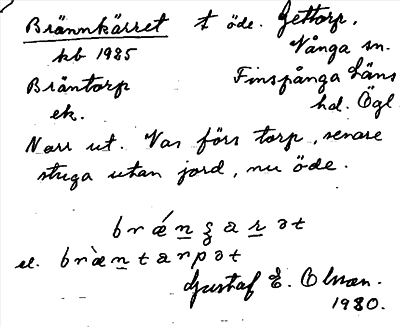 Brännkärret t öde. Jettorp,
kb 1985 Vånga sn.
Bräntorp Finspånga Läns
ek. hd. Ögl
Norr ut. Var förs torp, senare
stuga utan jord, nu öde.
brǽn̲ʒar̲ət
el. bræ̀n̲tarpət
Gustaf E. Olsson.
1930.